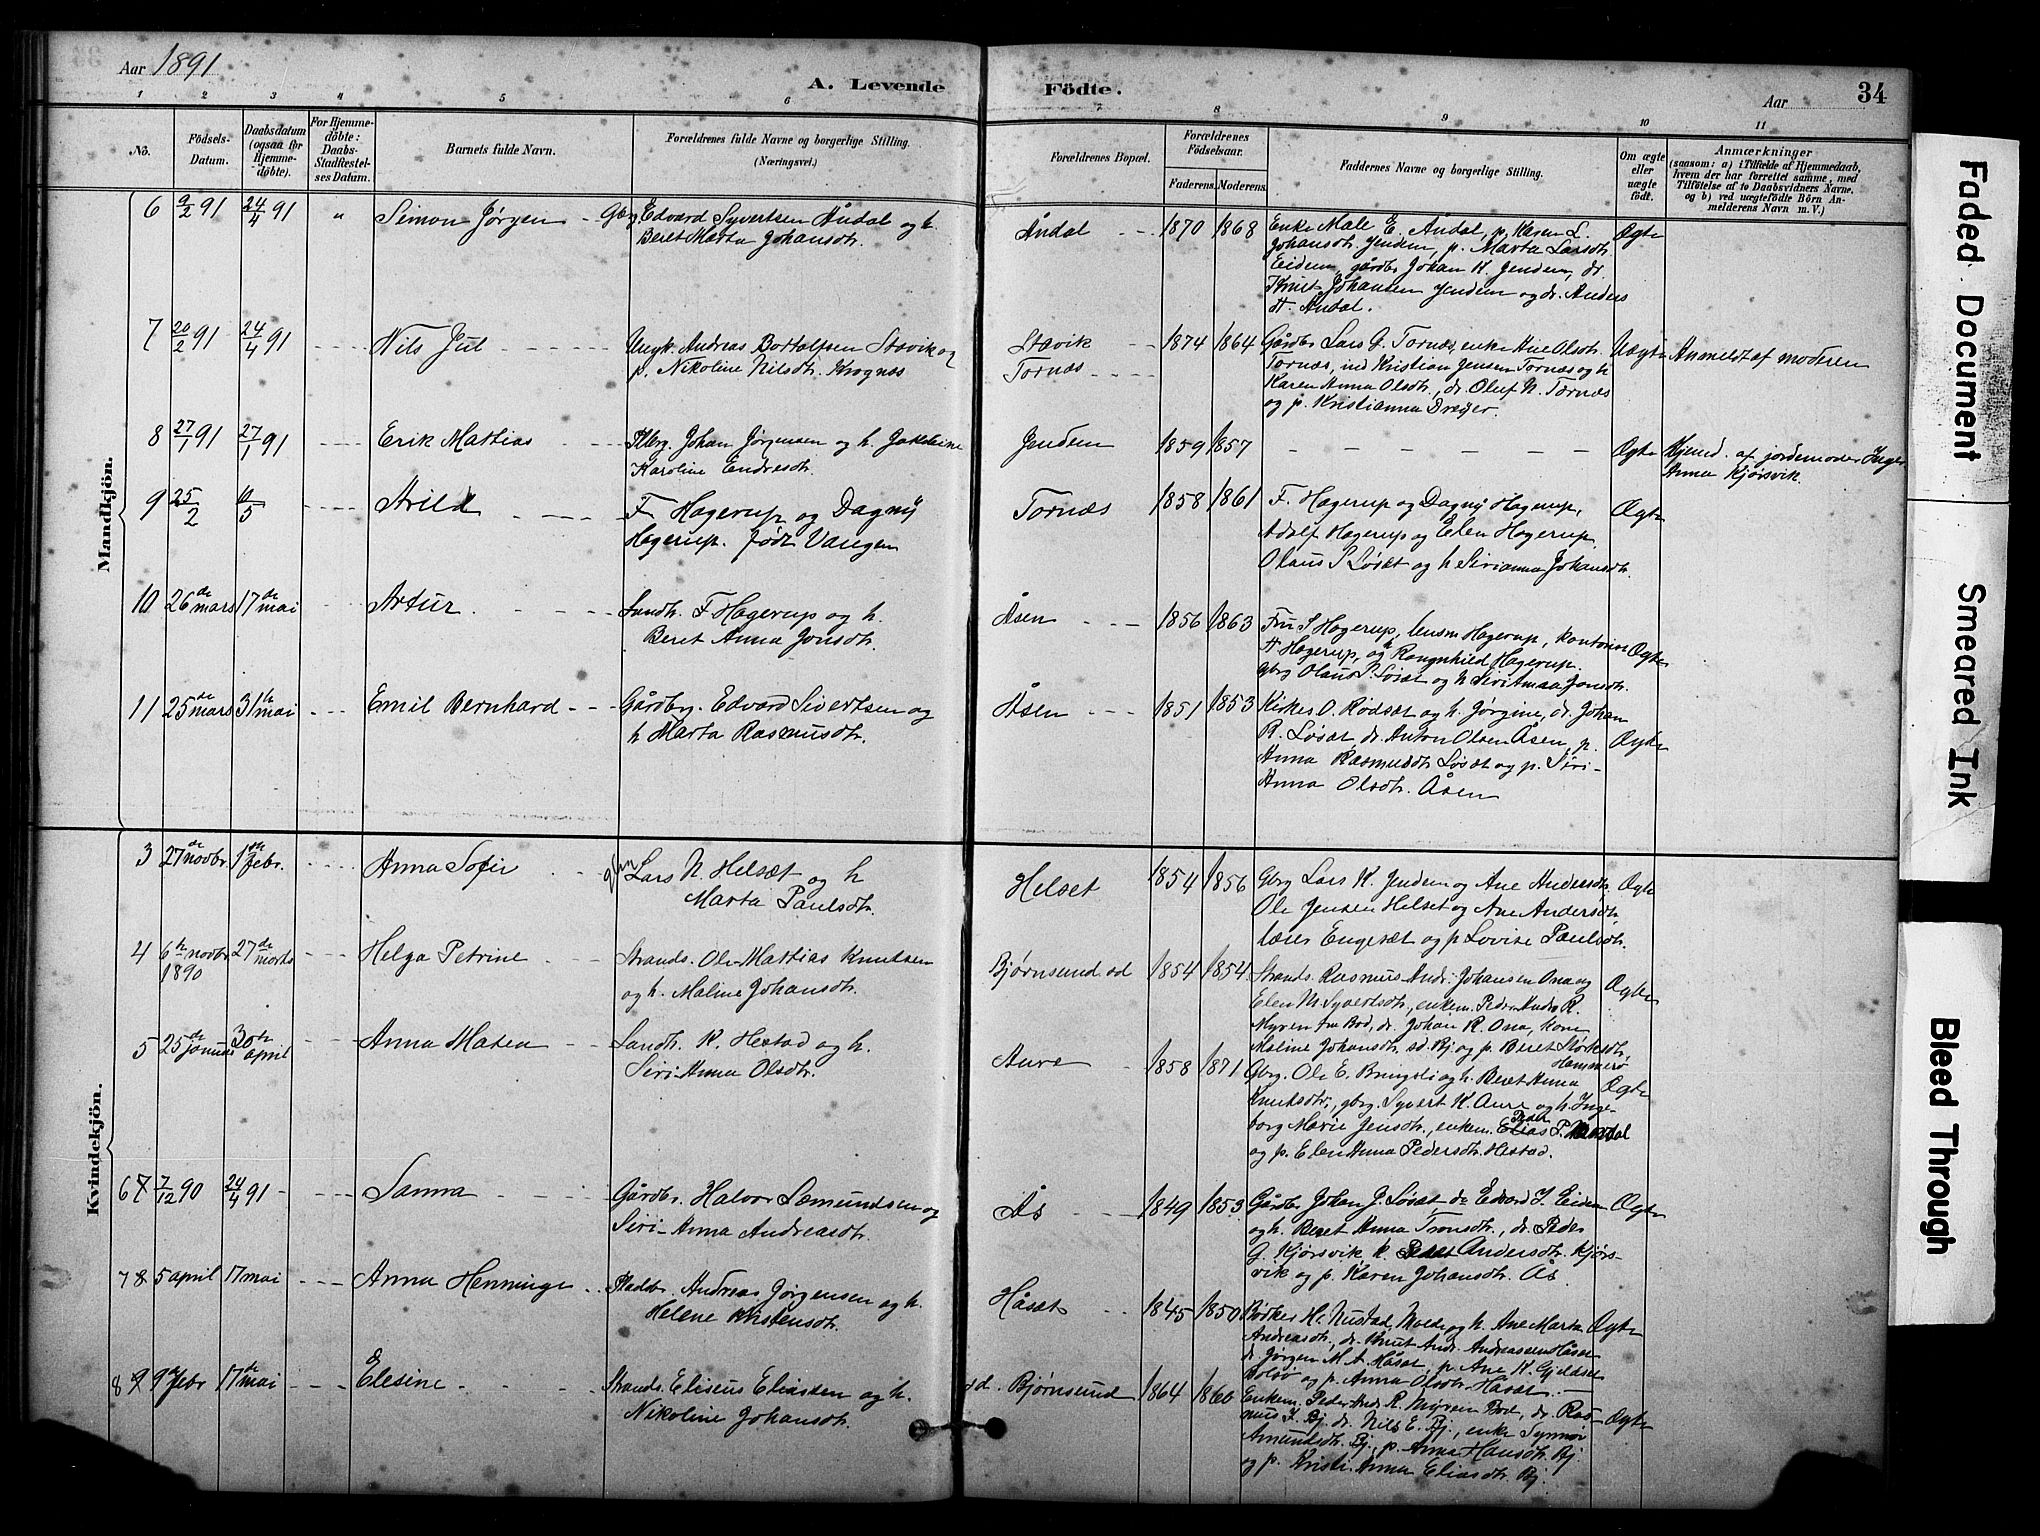 Aar 1891
A. Levende
Födte.
Aar
34
1 2 3 4 5 6 7 8 9 10 11
No.
Födsels-
Datum.
Daabsdatum
(ogsaa for
Hjemme-
døbte).
For Hjemme-
döbte:
Daabs-
Stadfestel-
ses Datum.
Barnets fulde Navn.
Forældrenes fulde Navne og borgerlige Stilling.
(Næringsvei.)
Forældrenes Bopæl.
Forældrenes
Födselsaar.
Faderens. Moderens.
Faddernes Navne og borgerlige Stilling.
Om ægte
eller
uægte
født.
Anmærkninger
(saasom: a) i Tilfælde af Hjemmedaab,
hvem der har forrettet samme, med
Tilføielse af to Daabsvidners Navne,
og b) ved uægtefødte Börn An-
melderens Navn m. V.)
Mandkjön.
6 9/2 91 24/4 91 " Simon Jørgen
Edvard Syvertsen Åndal og h.
Beret Marta Johansdtr.
Åndal 1870 1868
Enke Male E. Åndal, p. Karen L.
Johansdtr. Jendem, p. Marta Larsdtr.
Eidem, gårdbr Johan K. Jendem, dr.
Knut Johansen Jendem og dr. Anders
A. Åndal.
Ægte
7 20/2 91 24/4 91 Nils Jul
Ungk. Andreas Bortolfsen Stavik og
p. Nikoline Nilsdtr. Krognæs
Stavik
Tornæs
1874 1864
Gårdbr Lars G. Tornæs, enke Ane Olsdtr.
Tornæs, ind Kristian Jensen Tornæs og h
Karen Anna Olsdtr., dr. Oluf N. Tornæs
og p. Kristianna Dreyer.
Uægte Anmeldt af moderen
8 27/1 91 27/1 91 Erik Mattias
Johan Jørgensen og h. Jakobine
Karoline Endresdtr.
Jendem 1859 1857
Ægte
Hjemd. af jordemoder Inger
Anna Kjørsvik.
9 25/2 6/5 Arild
F. Hagerup og Dagny
Hagerup. født Vangen
Tornæs 1858 1861
F. Hagerup og Dagny Hagerup,
Adolf Hagerup og Elen Hagerup,
Olaus S Løset og h Sirianna Johansdtr.
Ægte
10 26de mars 17de mai Artur
Landh. F Hagerup og h.
Beret Anna Jonsdtr.
Åsen 1856 1863
Fru S Hagerup, lensm Hagerup, kontorist
A Hagerup, og Rangnhild Hagerup.
gbrg Olaus S. Løset og h Siri Anna Jonsdtr.
Ægte
11 25de mars 31te mai Emil Bernhard
Gårdbrg. Edvard Sivertsen og
h Marta Rasmusdtr.
Åsen 1851 1853
Kirkes O. Rødsæt og h. Jørgine, dr. Johan
R. Løsæt, dr. Anton Olsen Åsen, p.
Anna Rasmusdtr Løsæt og p. Siri-
Anna Olsdtr. Åsen
Ægte
Kvindekjön.
3 27de novbr. 1ste febr. Anna Sofie
Lars N. Helsæt og h
Marta Paulsdtr.
Helset 1854 1856
Gbrg Lars K. Jendem og Ane Andersdtr.
Ole Jensen Helset og Ane Andersdtr.
lærer Engesæt og p Lovise Paulsdtr.
Ægte
4 6te novbr. 1890 27de marts Helga Petrine
Strands. Ole Mattias Knutsen
og h. Maline Johansdtr.
Bjørnsund sd 1854 1854
Strands. Rasmus Andr. Johansen Ona og
Elen M. Syvertsdtr., enkem. Peder Andr. R.
Myren fra Bod, dr. Johan R. Ona, kone
Maline Johansdtr. sd. Bj og p. Beret Størksdtr.
Hammerø
Ægte
5 25de januar 30te april Anna Matea
Landh. K. Hestad og h.
Siri-Anna Olsdtr.
Aure 1858 1871
Gbrg. Ole E. Bringsli og h. Beret Anna
Knutsdtr., gbrg. Syvert K. Aure og h. Inge-
borg Marie Jensdtr., enkem. Elias P.
Peder
og p. Elen Anna Pedersdtr. Hestad.
Ægte
6 7 7/12 90 24/4 91 Sanna
Gårdbr. Halvor Sæmundsen og
Siri-Anna Andreasdtr.
Ås 1849 1853
Gårdbr Johan G. Løsæt, dr Edvard I. Eidem
og h. Beret Anna Tronsdtr., dr. Peder
G. Kjørsvik, k. Andersdtr. Kjørs-
vik og p. Karen Johansdtr. Ås.
Ægte
7 8 5 april 17 mai Anna Henninge
Pladsbr. Andreas Jørgensen og h.
Helene Kristensdtr.
Håsæt 1845 1850
Bødker H. Nustad, Molde og h. Ane Marta
Andreasdtr., dr. Knut Andr. Andreassen Håsæt
dr. Jørgen M. A. Håsæt, p. Ane K. Gjeldset
Bolsø og p. Anna Olsdtr. Håsæt.
Ægte
8 9 9de febr 17de mai Elesine
Strands. Eliseus Eliassen og h.
Nikoline Johansdtr.
sd. Bjørnsund 1864 1860
Enkem. Peder Andr. R. Myren Bod, dr. Ras-
mus I. Bj. dr. Nils E. Bj., enke Synnøv
Amundsdtr. Bj, p. Anna Hansdtr. Bj
og p. Kristi Anna Eliasdtr. Bj.
Ægte
Faded Document
Smeared Ink
Bleed Through